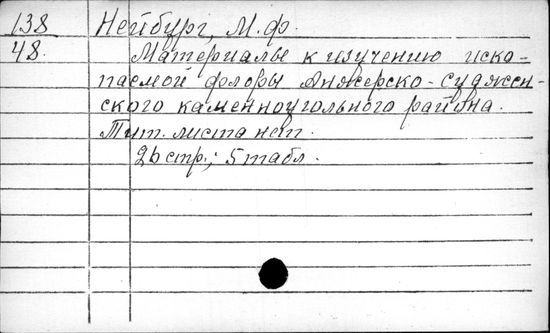 138 Нейбург, М.Ф.
48. Материалы к изучению иско-
паемой флоры Анжерско-Суджен-
ского каменноугольного района.
Тит. листа нет.
26 стр.; 5 табл.